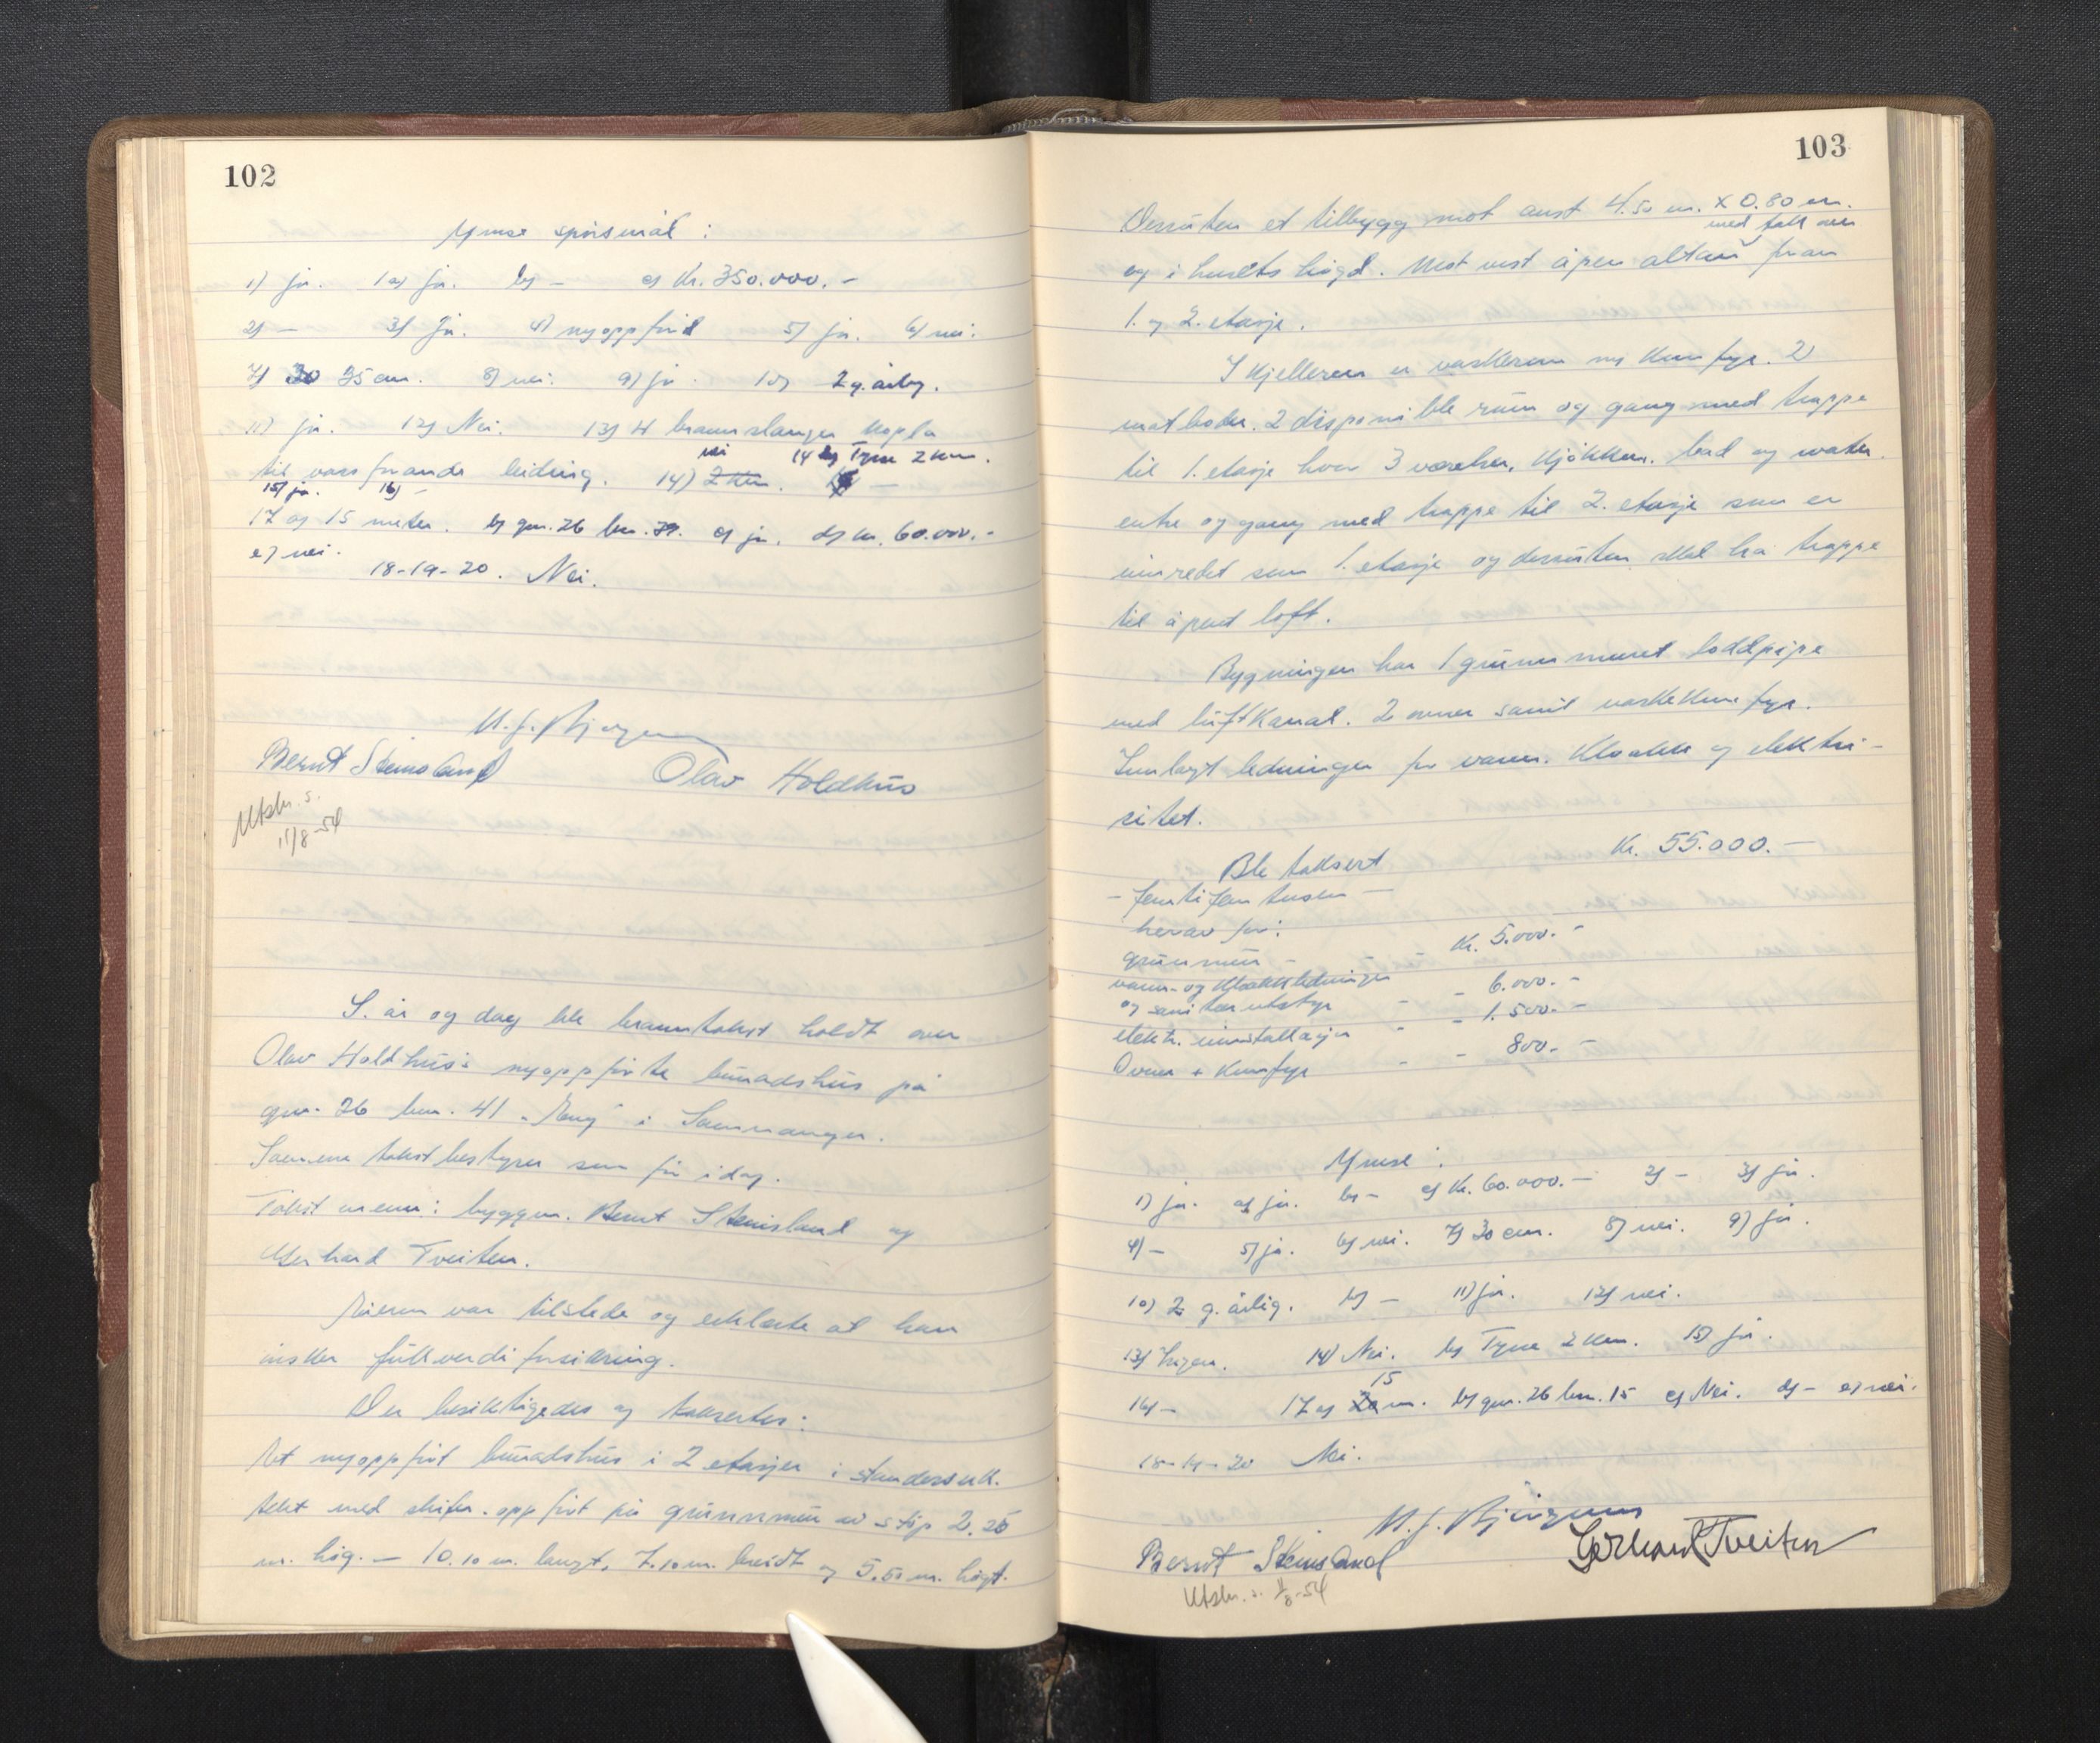 102
Ymse spörsmål :
1) ja. 1 a) ja. b) - c) Kr. 350.000.-
2) - 3) Ja. 4) nyoppförd 5) ja. 6) nei.
7) 30 35 cm. 8) nei. 9) ja. 10) 2 g. årleg.
11) ja. 12) Nei. 13) 4 brannslanger kopla
nei 14 b) Tyse 2 km.
til vassförande leidning. 14) 2 km. -
15) ja. 16) -
17 a) 15 meter. b) gnr. 26 bnr. 39. c) ja. d) kr. 60.000.-
e) nei.
18-19-20. Nei.
Bernt Steinsland Olav Holdhus
Utskr. s.
11/8-54
S. år og dag ble branntakst holdt over
Olav Holdhus's nyoppförte bunadshus på
gnr. 26 bnr. 41 "Eng" i Samnanger.
Samme takstbestyrer som för i dag.
Takstmenn: byggm. Bernt Steinsland og
Gerhard Tveiten.
Eieren var tilstede og erklærte at han
önsker fullverdiforsikring.
Der besiktigedes og taksertes:
Et nyoppfört buadshus i 2 etasjer i standerverk.
tekt med skifer. oppfört på grunnmur av stöp 2.25
m. hög. - 10.10 m. langt, 7.10 m. breidt og 5.50 m. högt.
103
Dessuten et tilbygg mot aust 4.50 m. x 0.80 m.
med takk over
og i husets högd. Mot vest åpen altan fran
1. og 2. etasje.
I kjelleren er vaskerum m/ komfyr. 2
matboder. 2 disponible rum og gang med trappe
til 1. etasje hvor 3 værelser, kjökken. bad og water.
entre og gang med trappe til 2. etasje som er
innredet som 1. etasje og dessuten skal ha trappe
til åpent loft.
Bygningen har 1 grunnmuret loddpipe
med luftkanal. 2 ovner samt vaskekomfyr.
Innlagt ledninger for vann. Kloakk og elektri-
sitet.
Ble taksert Kr. 55.000.-
- femtifem tusen -
herav for:
grunnmur - - Kr. 5.000.-
vann- og kloakkledninger
og sanitærutstyr - - 6.000.-
elektr. innstallasjon - - 1.500.-
Ovner + komfyr - - 800.-
Ymse :
1) ja. a) ja. b) - c) Kr. 60.000.- 2) - 3) ja.
4) - 5) ja. 6) nei. 7) 30 cm. 8) nei. 9) ja.
10) 2 g. årlig. b) - 11) ja. 12) nei.
13) Ingen. 14) Nei. b) Tyse 2 km. 15) ja.
15
16) - 17 a) 20 m. b) gnr. 26 bnr. 15 c) Nei. d) - e) nei.
18-19-20 Nei.
Bernt Steinsland Gerhard Tveiten
Utskr. s. 11/8-54